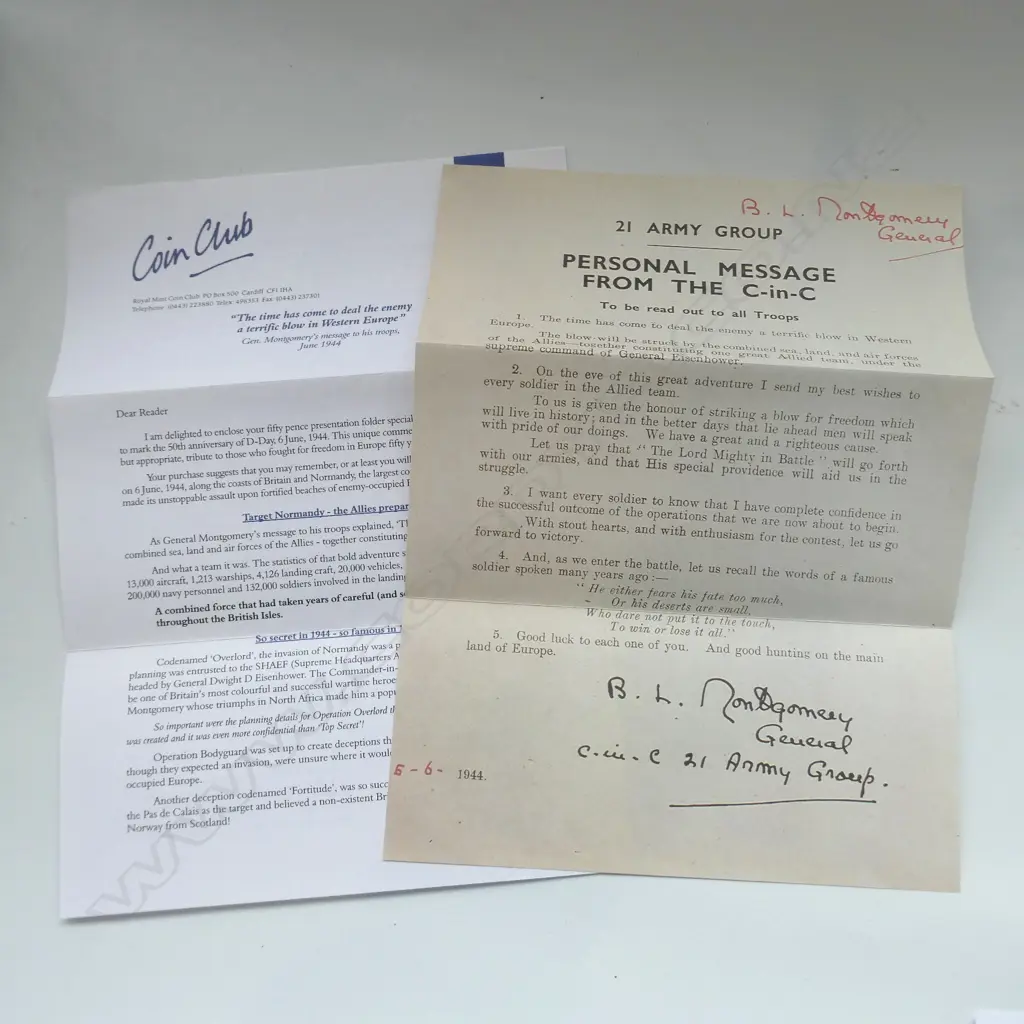 Coin Club
Royal Mint Coin Club PO Box 500 Cardiff CF1 1HA
Telephone (0443) 223880 Telex 498353 Fax (0443) 237801
"The time has come to deal the enemy
a terrific blow in Western Europe"
Gen. Montgomery's message to his troops,
June 1944
Dear Reader
I am delighted to enclose your fifty pence presentation folder special
to mark the 50th anniversary of D-Day, 6 June, 1944. This unique comme
but appropriate, tribute to those who fought for freedom in Europe fifty y
Your purchase suggests that you may remember, or at least you will
on 6 June, 1944, along the coasts of Britain and Normandy, the largest co
made its unstoppable assault upon fortified beaches of enemy-occupied
Target Normandy - the Allies prepar
As General Montgomery's message to his troops explained, 'T
combined sea, land and air forces of the Allies - together constituting
And what a team it was. The statistics of that bold adventure s
13,000 aircraft, 1,213 warships, 4,126 landing craft, 20,000 vehicles,
200,000 navy personnel and 132,000 soldiers involved in the landing
A combined force that had taken years of careful (and s
throughout the British Isles.
So secret in 1944 - so famous in 1
Codenamed 'Overlord', the invasion of Normandy was a p
planning was entrusted to the SHAEF (Supreme Headquarters A
headed by General Dwight D Eisenhower. The Commander-in-
be one of Britain's most colourful and successful wartime heroe
Montgomery whose triumphs in North Africa made him a pop
So important were the planning details for Operation Overlord th
was created and it was even more confidential than 'Top Secret'!
Operation Bodyguard was set up to create deceptions th
though they expected an invasion, were unsure where it would
occupied Europe.
Another deception codenamed 'Fortitude', was so succ
the Pas de Calais as the target and believed a non-existent Br
Norway from Scotland!
B. L. Montgomery
General
21 ARMY GROUP
PERSONAL MESSAGE
FROM THE C-in-C
To be read out to all Troops
1. The time has come to deal the enemy a terrific blow in Western
Europe.
The blow will be struck by the combined sea, land, and air forces
of the Allies—together constituting one great Allied team, under the
supreme command of General Eisenhower.
2. On the eve of this great adventure I send my best wishes to
every soldier in the Allied team.
To us is given the honour of striking a blow for freedom which
will live in history; and in the better days that lie ahead men will speak
with pride of our doings. We have a great and a righteous cause.
Let us pray that "The Lord Mighty in Battle" will go forth
with our armies, and that His special providence will aid us in the
struggle.
3. I want every soldier to know that I have complete confidence in
the successful outcome of the operations that we are now about to begin.
With stout hearts, and with enthusiasm for the contest, let us go
forward to victory.
4. And, as we enter the battle, let us recall the words of a famous
soldier spoken many years ago:—
"He either fears his fate too much,
Or his deserts are small,
Who dare not put it to the touch,
To win or lose it all."
5. Good luck to each one of you. And good hunting on the main
land of Europe.
B. L. Montgomery
General
C-in-C 21 Army Group.
5-6- 1944.